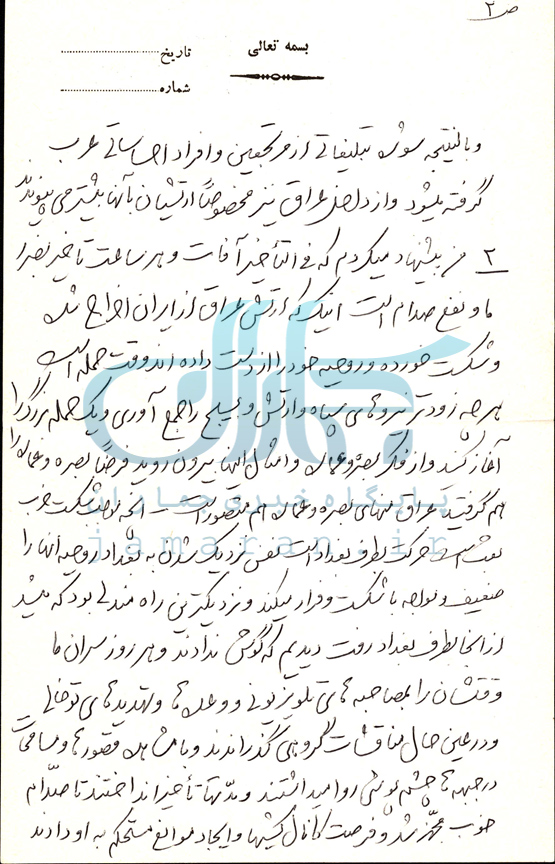 ص ۲
بسمه تعالی
تاریخ
شماره
و بالنتیجه سوژه تبلیغاتی از مرتجعین و افراد احساساتی عرب
گرفته میشود و از داخل عراق نیز مخصوصاً ارتشیان بآنها بیشتر می پیوندند
۲ من پیشنهاد میکردم که فی التأخیر آفات و هر ساعت تأخیر بضرر
ما و نفع صدام است اینک که ارتش عراق از ایران اخراج شده
و شکست خورده و روحیه خود را از دست داده اند وقت حمله است
هر چه زودتر نیروهای سپاه و ارتش و بسیج را جمع آوری و یک حمله بزرگ را
آغاز کنند و از فکر بصره و عماره و امثال اینها بیرون روید فرضاً بصره و عماره را
هم گرفتید عراق منهای بصره و عماره هم متصور است آنچه موجب شکست حزب
بعث است حرکت بطرف بغداد است نفس نزدیک شدن به بغداد روحیه آنها را
ضعیف و مواجه با شکست و فرار میکند و نزدیکترین راه مندلی بود که میشد
از آنجا بطرف بغداد رفت دیدیم که گوش ندادند و هر روز سران ما
وقتشان را بمصاحبه های تلویزیونی و وعده ها و تهدیدهای توخالی
و در عین حال مناقشات گروهی گذراندند و با مشاهده قصورها و
در جبهه ها چشم پوشی روا میداشتند و مدتها تأخیر انداختند تا صدّام
خوب مجهّز شد و فرصت کانال کشیها و ایجاد موانع مستحکم به او دادند
پایگاه خبری جماران
jamaran.ir